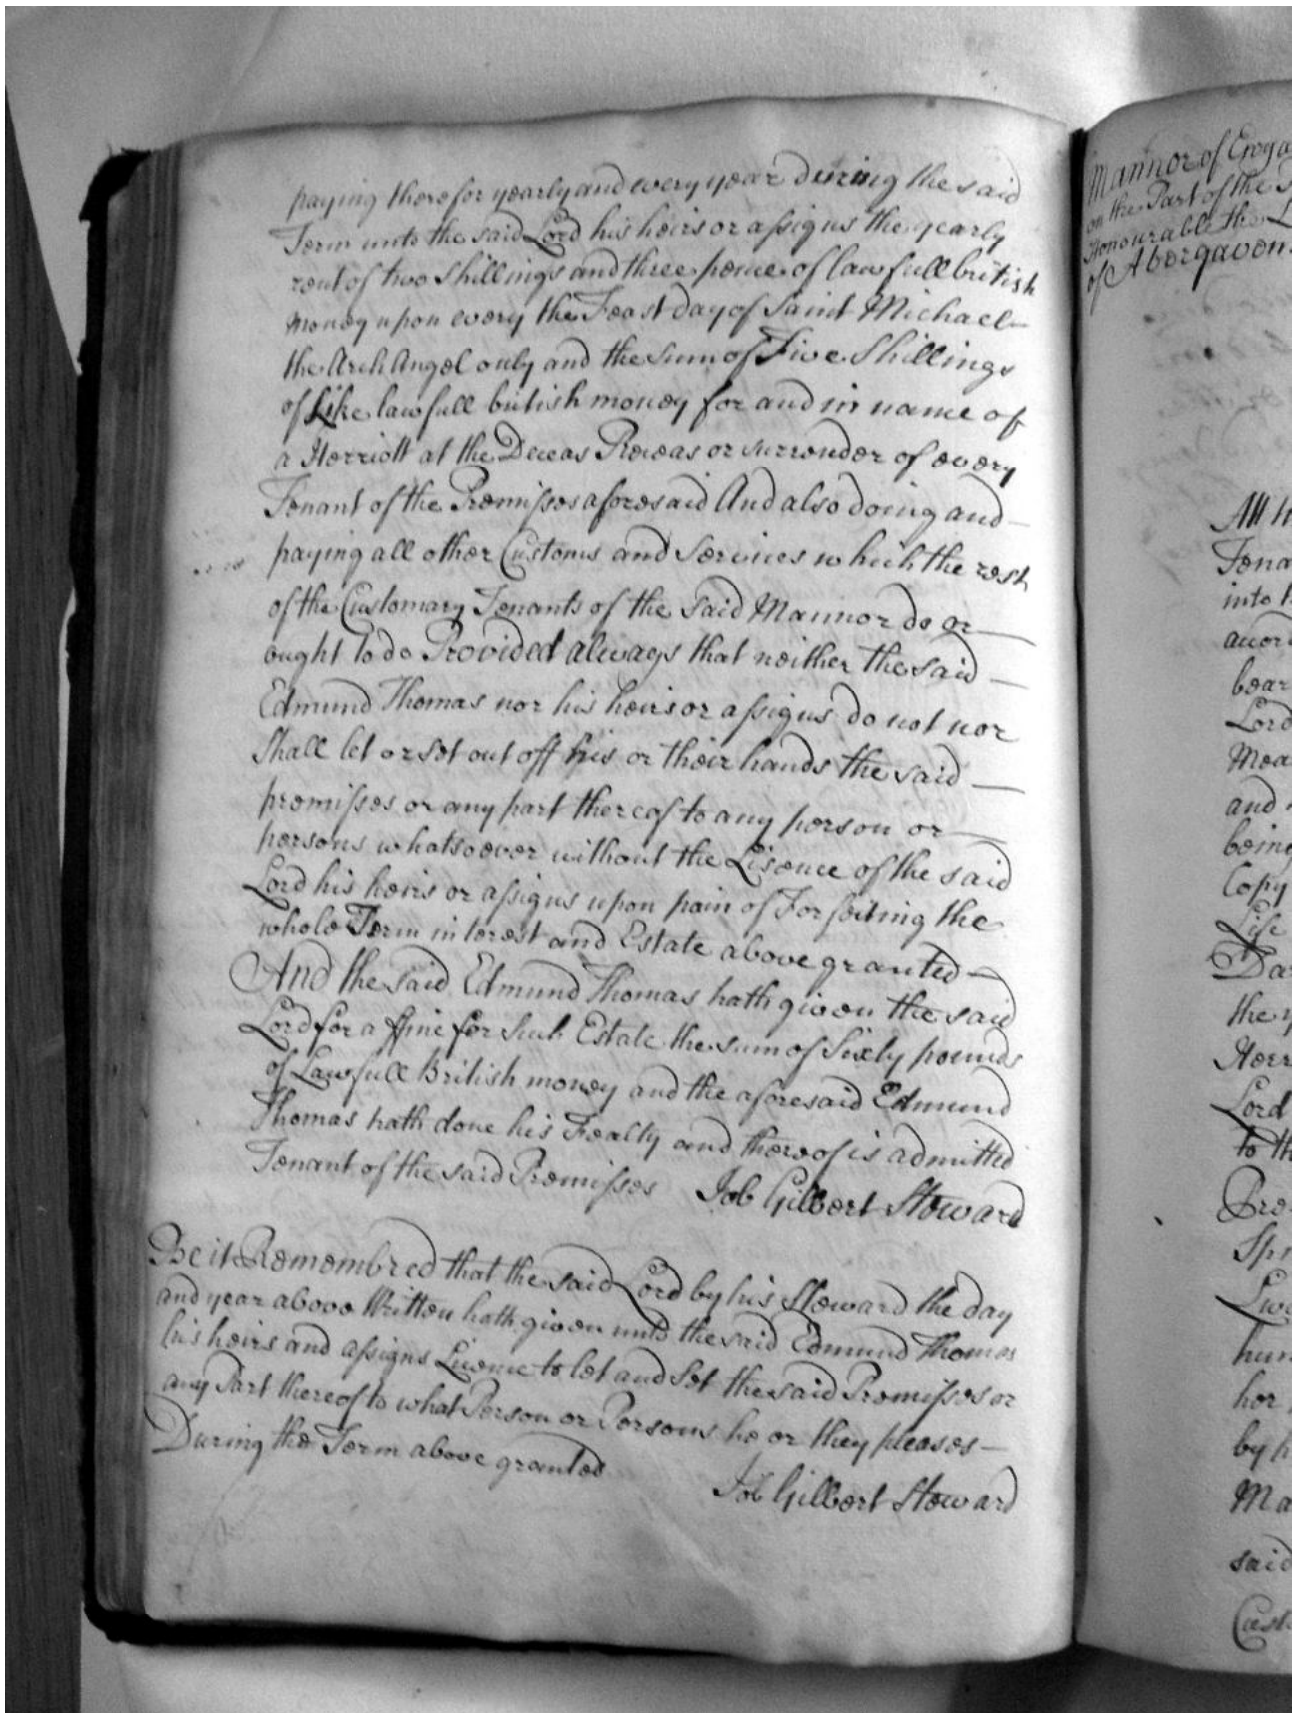 paying therefor yearly and every year during the said
Term unto the said Lord his heirs or assigns the yearly
rent of two Shillings and three pence of lawfull british
money upon every the Feast day of Saint Michael
the Arch Angel only and the sum of Five Shillings
of Like lawfull british money for and in name of
a Herriott at the Deceas Releas or surrender of every
Tenant of the Premisses aforesaid And also doing and
paying all other Customs and Services which the rest
of the Customary Tenants of the said Mannor do or
ought to do Provided always that neither the said
Edmund Thomas nor his heirs or assigns do not nor
Shall let or set out off his or their hands the said
premisses or any part thereof to any person or
persons whatsoever without the Lisence of the said
Lord his heirs or assigns upon pain of Forfeiting the
whole Term interest and Estate above granted
And the said Edmund Thomas hath given the said
Lord for a ffine for such Estate the sum of Sixty pounds
of Lawfull British money and the aforesaid Edmund
Thomas hath done his Fealty and thereof is admitted
Tenant of the said Premisses Job Gilbert Steward
Be it Remembred that the said Lord by his Steward the day
and year above Written hath given unto the said Edmund Thomas
his heirs and assigns Licence to let and Set the said Premisses or
any Part thereof to what Person or Persons he or they pleases
During the Term above granted
Job Gilbert Steward
Mannor of
on the Part of the
Honourable the
of
All
into
and
Copy
Life
the
Lord
to
by
said